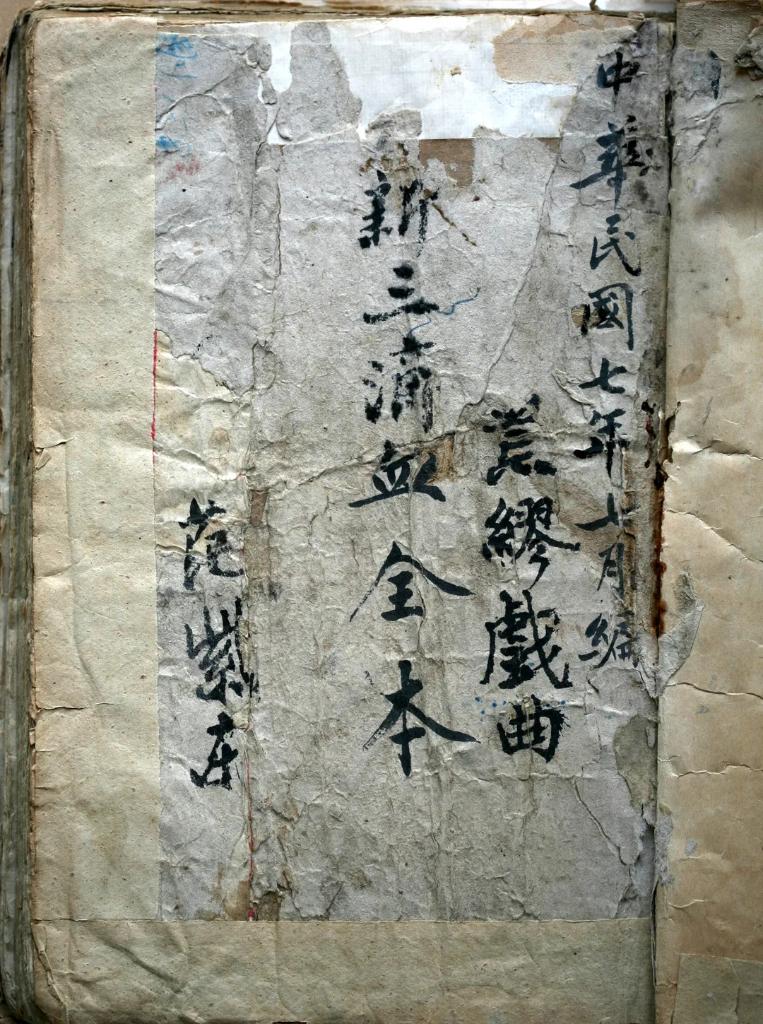 中華民國七年七月編
荒繆戲曲
新三滴血全本
范紫东